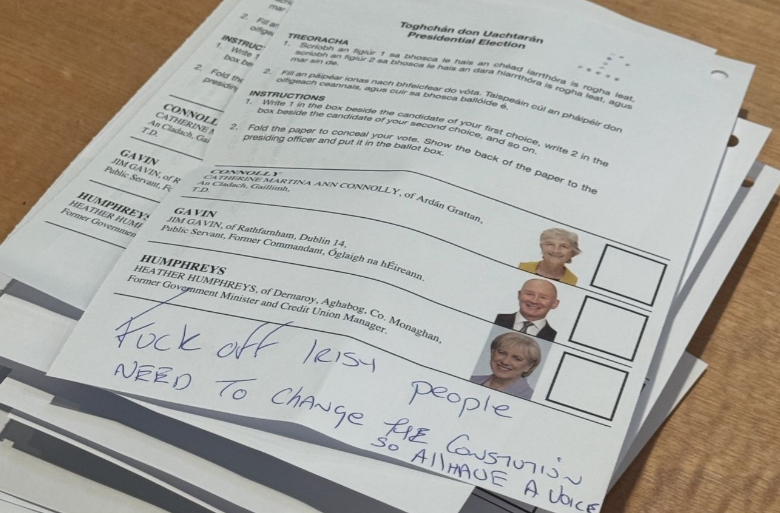 Toghchán don Uachtarán
Presidential Election
TREORACHA
1. Scríobh an figiúr 1 sa bhosca le hais an chéad iarrthóra is rogha leat,
scríobh an figiúr 2 sa bhosca le hais an dara hiarrthóra is rogha leat, agus
mar sin de.
2. Fill an páipéar ionas nach bhfeicfear do vóta. Taispeáin cúl an pháipéir don
oifigeach ceannais, agus cuir sa bhosca ballóide é.
INSTRUCTIONS
1. Write 1 in the box beside the candidate of your first choice, write 2 in the
box beside the candidate of your second choice, and so on.
2. Fold the paper to conceal your vote. Show the back of the paper to the
presiding officer and put it in the ballot box.
CONNOLLY
CATHERINE MARTINA ANN CONNOLLY, of Ardán Grattan,
An Cladach, Gaillimh,
T.D.
GAVIN
JIM GAVIN, of Rathfarnham, Dublin 14,
Public Servant, Former Commandant, Óglaigh na hÉireann.
HUMPHREYS
HEATHER HUMPHREYS, of Dernaroy, Aghabog, Co. Monaghan,
Former Government Minister and Credit Union Manager.
Fuck off Irish people
NEED TO CHANGE THE CONSTUTION
SO All HAVE A VOICE
mar
2. Fill an
oifige
INSTRUC
1. Write 1
box be
2. Fold the
presidin
CONNOLL
CATHERINE M
An Cladach, Gai
T.D.
GAVIN
JIM GAVIN, of R
Public Servant, Fo
HUMPHREYS
HEATHER HUMP
Former Governmen